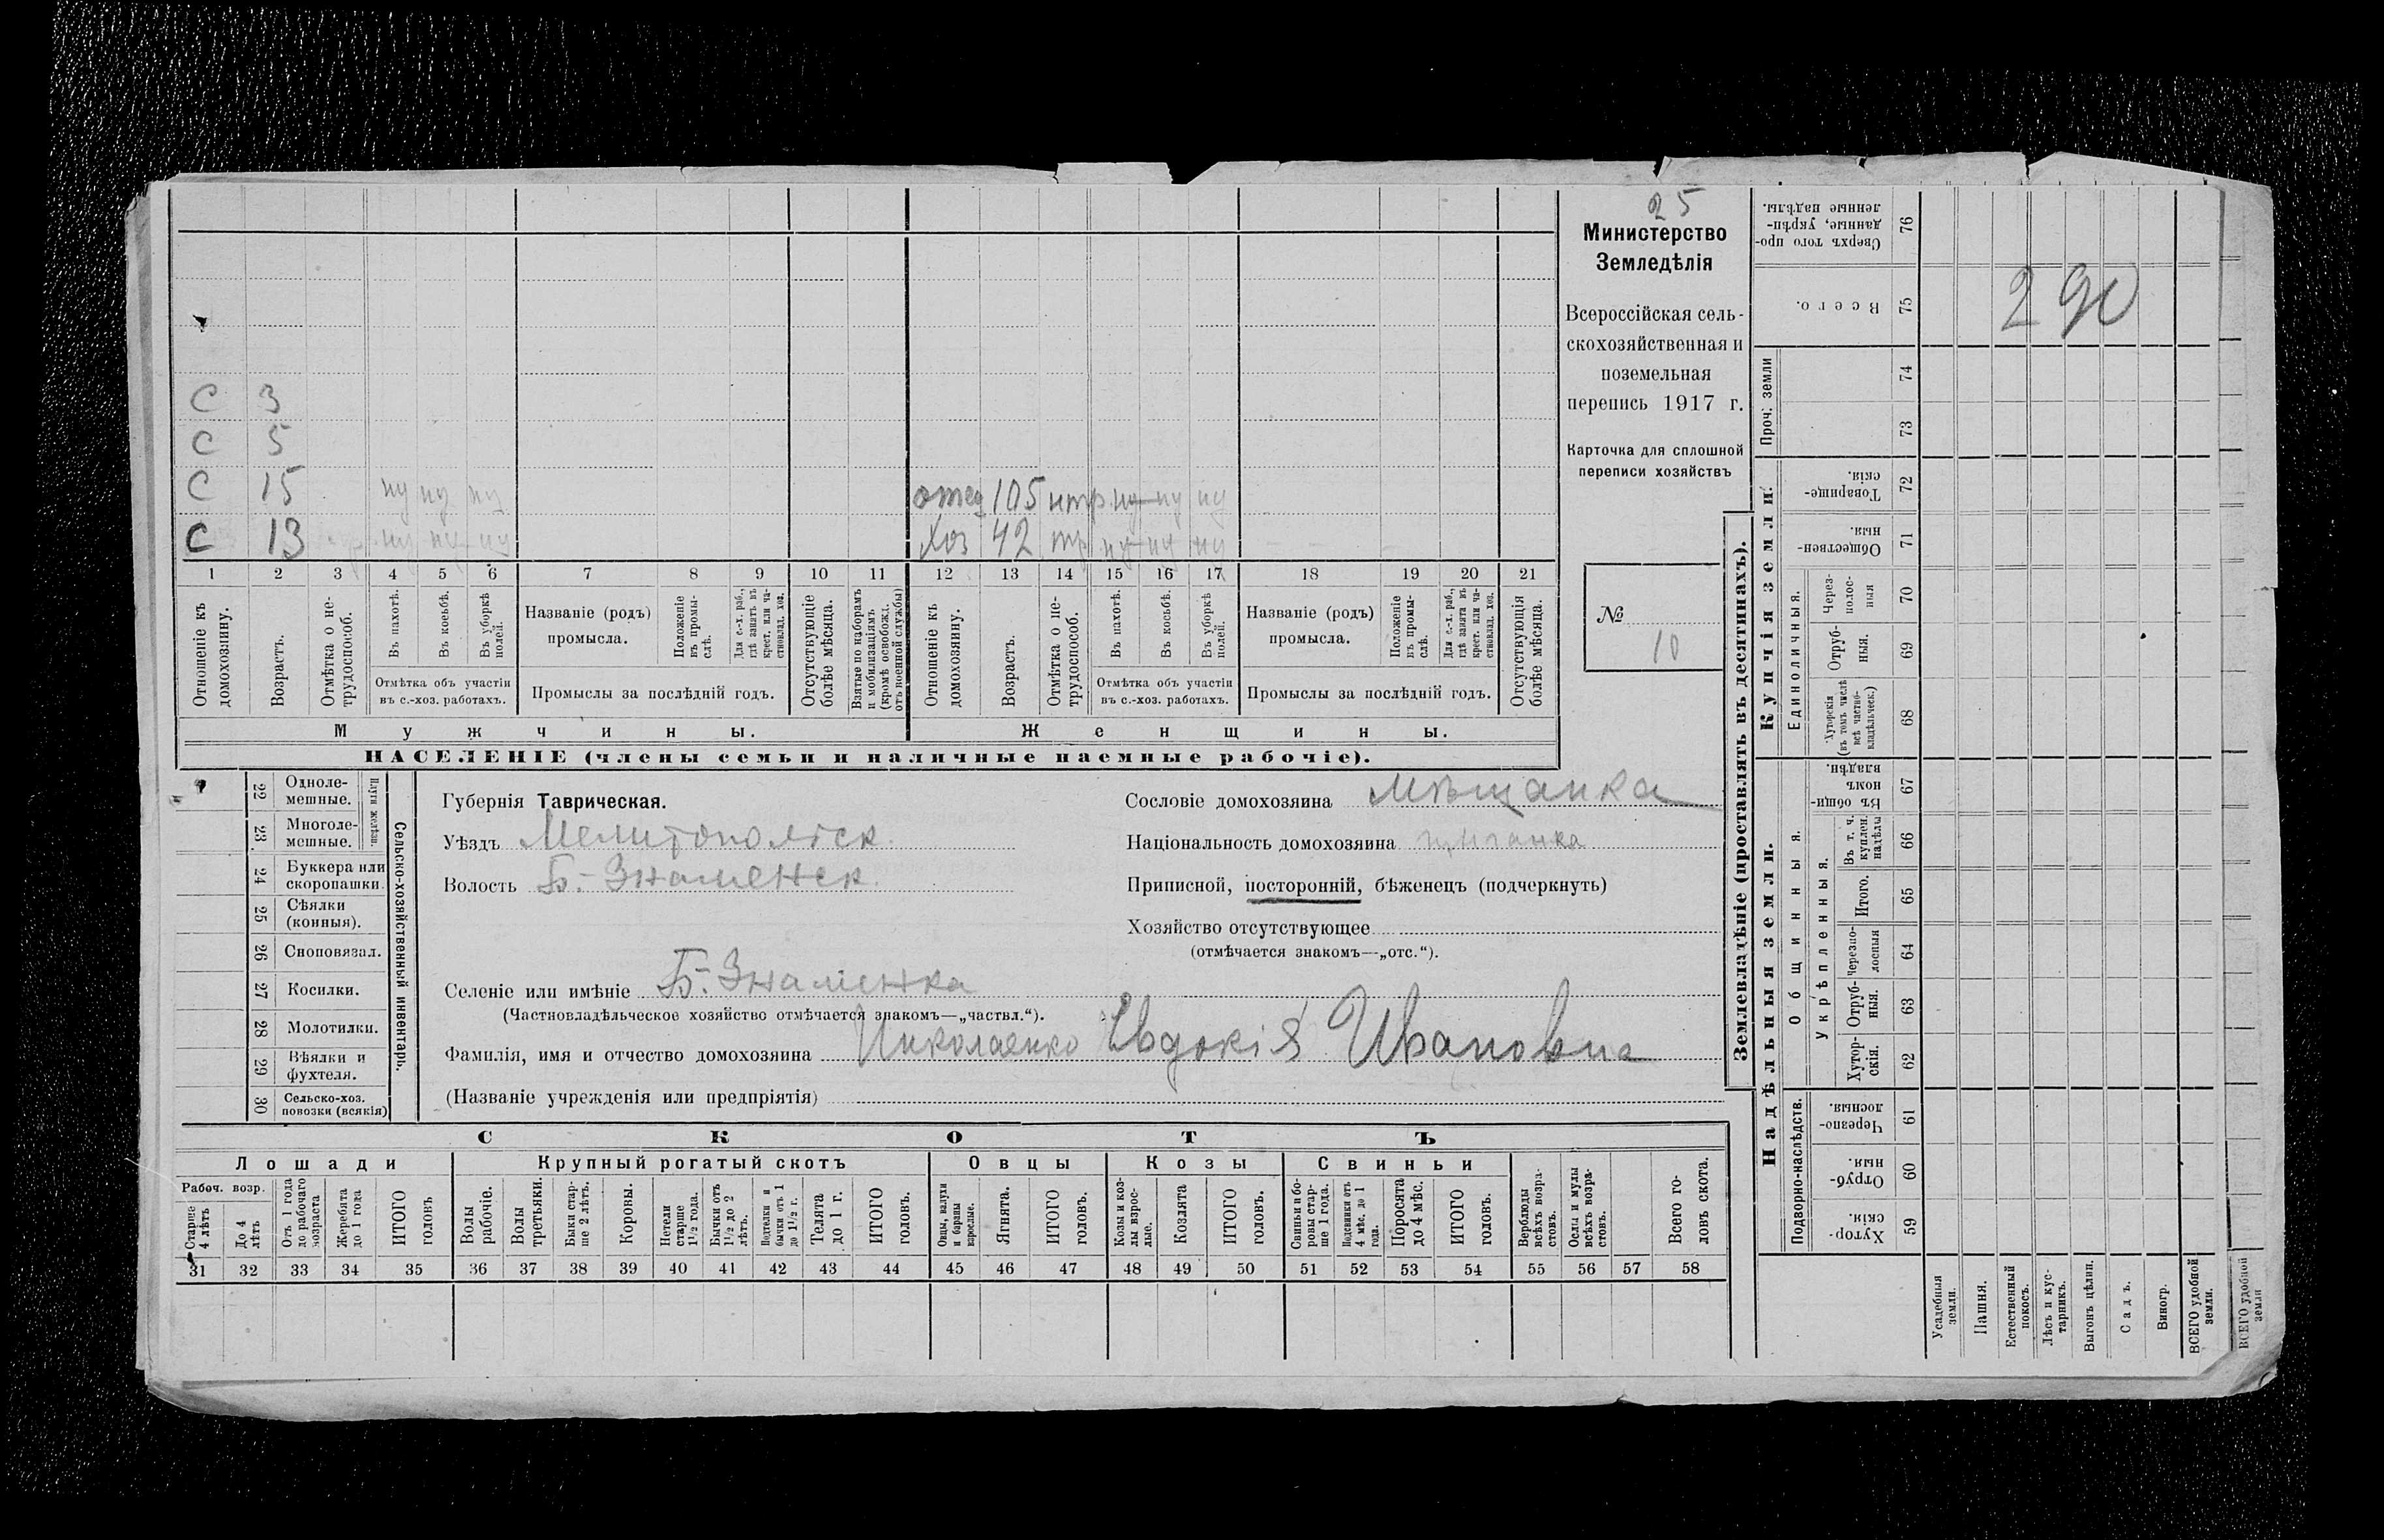 25
Министерство
Земледѣлія
Всероссійская сель-
скохозяйственная и
поземельная
перепись 1917 г.
Карточка для сплошной
переписи хозяйствъ
№
10
С 3
С 5
С 15 ну ну ну
С 13 ну ну ну
105 нтр ну ну ну
Хоз 42 тр ну ну ну
1 2 3 4 5 6 7 8 9 10 11 12 13 14 15 16 17 18 19 20 21
Отношеніе къ домохозяину.
Возрастъ.
Отмѣтка о не-трудоспособ.
Въ пахотѣ.
Въ косьбѣ.
Въ уборкѣ полей.
Отмѣтка объ участіи
въ с.-хоз. работахъ.
Названіе (родъ)
промысла.
Положеніе въ промы-слѣ.
Для с.-х. раб., гдѣ занятъ въ крест. или ча-стновлад. хоз.
Промыслы за послѣдній годъ.
Отсутствующіе болѣе мѣсяца.
Взятые по наборамъ и мобилизаціямъ (кромѣ освобожд. отъ военной службы)
Отношеніе къ домохозяину.
Возрастъ.
Отмѣтка о не-трудоспособ.
Въ пахотѣ.
Въ косьбѣ.
Въ уборкѣ полей.
Отмѣтка объ участіи
въ с.-хоз. работахъ.
Названіе (родъ)
промысла.
Положеніе въ промы-слѣ.
Для с.-х. раб., гдѣ занята въ крест. или ча-стновлад. хоз.
Промыслы за послѣдній годъ.
Отсутствующія болѣе мѣсяца.
Мужчины.
Женщины.
НАСЕЛЕНІЕ (члены семьи и наличные наемные рабочіе).
22 Одноле-мешные.
23 Многоле-мешные.
Плуги желѣзн.
24 Буккера или скоропашки.
25 Сѣялки (конныя).
26 Сноповязал.
27 Косилки.
28 Молотилки.
29 Вѣялки и фухтеля.
30 Сельско-хоз. повозки (всякія)
Сельско-хозяйственный инвентарь.
Губернія Таврическая.
Уѣздъ Мелитопольск.
Волость Б.-Знаменск.
Сословіе домохозяина Мѣщанка
Національность домохозяина цыганка
Приписной, посторонній, бѣженецъ (подчеркнуть)
Хозяйство отсутствующее
(отмѣчается знакомъ—„отс.“).
Селеніе или имѣніе Б.-Знаменка
(Частновладѣльческое хозяйство отмѣчается знакомъ—„частвл.“).
Фамилія, имя и отчество домохозяина Николаенко Евдокія Ивановна
(Названіе учрежденія или предпріятія)
СКОТЪ
Лошади
Крупный рогатый скотъ
Овцы
Козы
Свиньи
Рабоч. возр.
Старше 4 лѣтъ
До 4 лѣтъ
Отъ 1 года до рабочаго возраста
Жеребята до 1 года
ИТОГО головъ
Волы рабочіе.
Волы третьяки.
Быки стар-ше 2 лѣтъ.
Коровы.
Нетели старше 1½ года.
Бычки отъ 1½ до 2 лѣтъ.
Подтелки и бычки отъ 1 до 1½ г.
Телята до 1 г.
ИТОГО головъ.
Овцы, валухи и бараны взрослые.
Ягнята.
ИТОГО головъ.
Козы и коз-лы взрос-лые.
Козлята
ИТОГО головъ.
Свиньи и бо-ровы стар-ше 1 года.
Подсвинки отъ 4 мѣс. до 1 года.
Поросята до 4 мѣс.
ИТОГО головъ.
Верблюды всѣхъ возра-стовъ.
Ослы и мулы всѣхъ возра-стовъ.
Всего го-ловъ скота.
31 32 33 34 35 36 37 38 39 40 41 42 43 44 45 46 47 48 49 50 51 52 53 54 55 56 57 58
Землевладѣніе (проставлять въ десятинахъ).
Сверхъ того про-данные, укрѣп-ленные надѣлы. 76
Всего. 75
290
Проч. земли
74
73
Купчія земли.
Товарище-скія. 72
Обществен-ныя. 71
Единоличныя.
Через-полос-ныя 70
Отруб-ныя. 69
Хуторскія (въ томъ числѣ всѣ частно-владѣльческ.) 68
Надѣльныя земли.
Общинныя.
Въ общин-номъ владѣн. 67
Укрѣпленныя.
Въ т. ч. куплен. надѣлы 66
Итого. 65
Черезпо-лосныя 64
Отруб-ныя. 63
Хутор-скія. 62
Подворно-наслѣдств.
Черезпо-лосныя. 61
Отруб-ныя. 60
Хутор-скія. 59
Усадебныя земли.
Пашня.
Естественный покосъ.
Лѣсъ и кус-тарникъ.
Выгонъ цѣлин.
Садъ.
Виногр.
ВСЕГО удобной земли.
ВСЕГО удобной земли